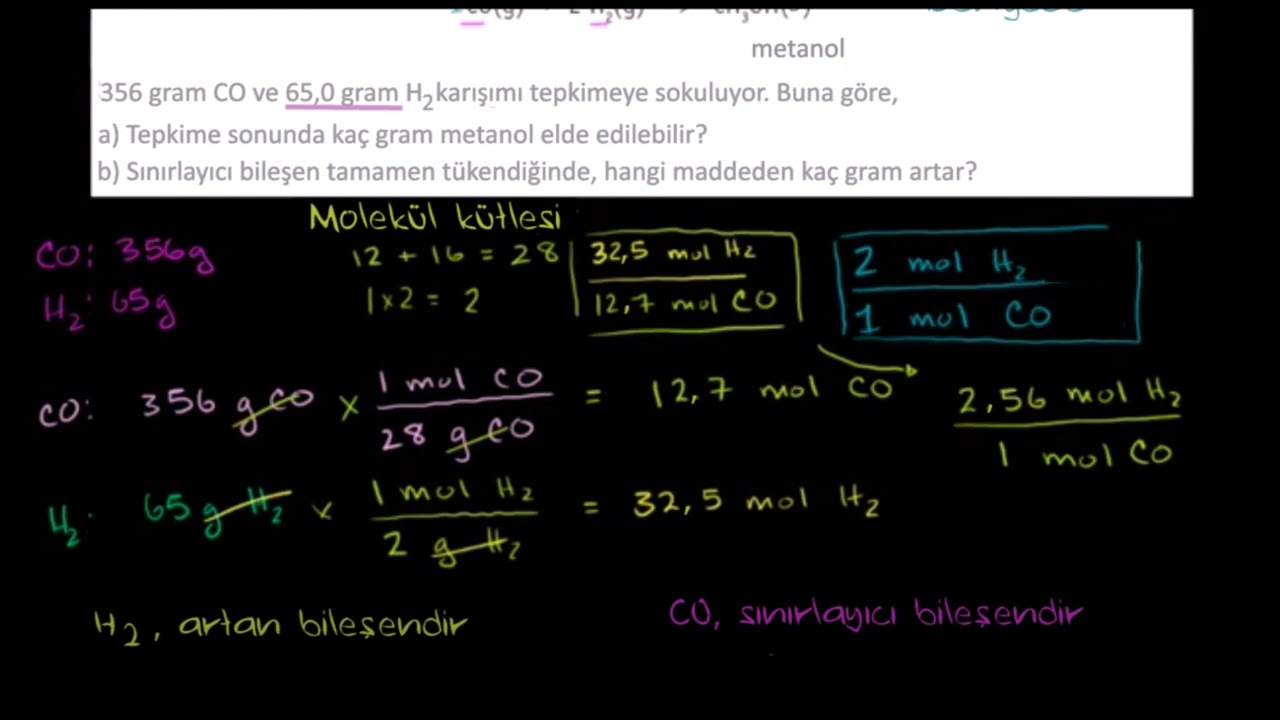 metanol
356 gram CO ve 65,0 gram H₂ karışımı tepkimeye sokuluyor. Buna göre,
a) Tepkime sonunda kaç gram metanol elde edilebilir?
b) Sınırlayıcı bileşen tamamen tükendiğinde, hangi maddeden kaç gram artar?
Molekül kütlesi
CO: 356g
12 + 16 = 28
H₂: 65g
1x2 = 2
32,5 mol H₂
12,7 mol CO
2 mol H₂
1 mol CO
CO: 356 g CO x 1 mol CO / 28 g CO = 12,7 mol CO
2,56 mol H₂
1 mol CO
H₂: 65 g H₂ x 1 mol H₂ / 2 g H₂ = 32,5 mol H₂
H₂, artan bileşendir
CO, sınırlayıcı bileşendir